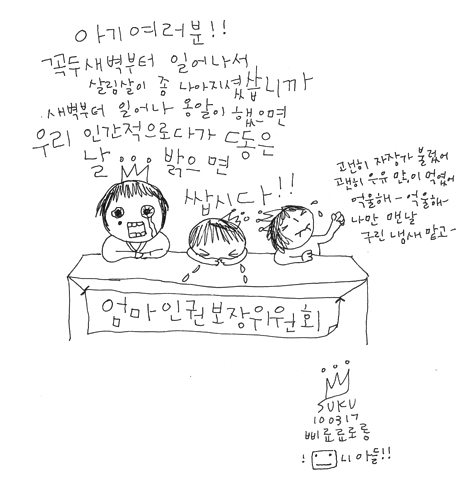 아기여러분!!
꼭두새벽부터 일어나서
살림살이 좀 나아지셨쌉니까
새벽부터 일어나 옹알이 했으면
우리 인간적으로다가 C동은
날... 밝으면
쌉시다!!
괜히 자장가 불렀어
괜히 우유 많이 먹였어
억울해~ 억울해~
나만 맨날
구린 냄새 맡고~
엄마인권보장위원회
SUKU
100317
삐료료로롱
! 니아들!!